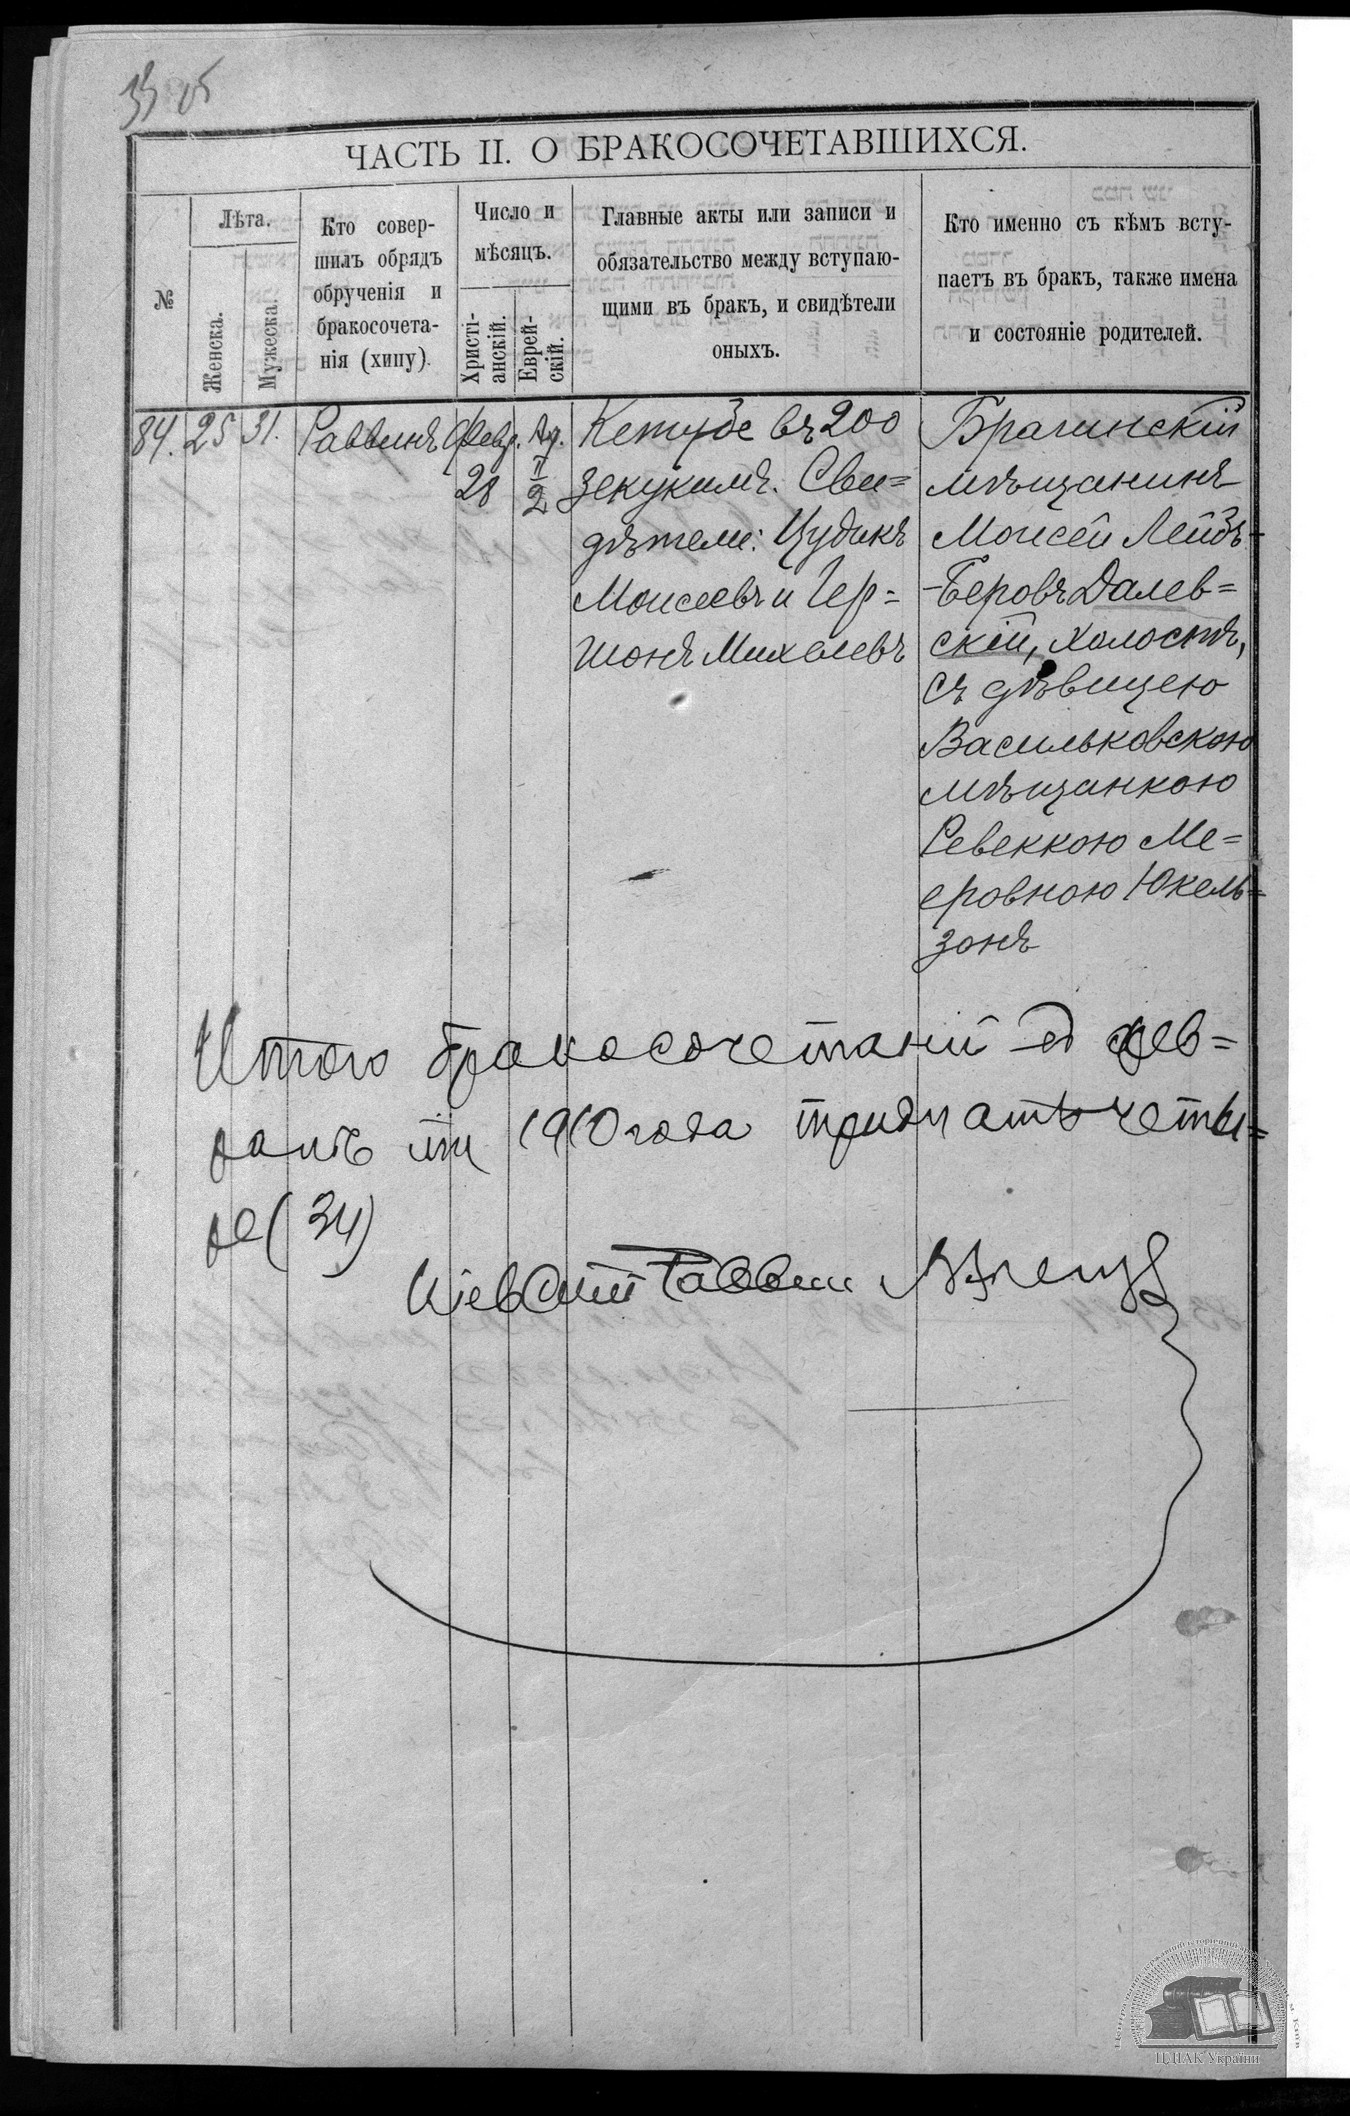 33 об
ЧАСТЬ II. О БРАКОСОЧЕТАВШИХСЯ.
№
Лѣта.
Женска.
Мужеска.
Кто совер-
шилъ обрядъ
обрученія и
бракосочета-
нія (хипу).
Число и
мѣсяцъ.
Христі-
анскій.
Еврей-
скій.
Главные акты или записи и
обязательство между вступаю-
щими въ бракъ, и свидѣтели
оныхъ.
Кто именно съ кѣмъ всту-
паетъ въ бракъ, также имена
и состояніе родителей.
84. 25 31. Раввинъ Февр. Ад.
28 II 2
Кетубе въ 200
зекукимъ. Сви=
дѣтели: Цудикъ
Моисеевъ и Гер=
шонъ Михелевъ
Брагинскій
мѣщанинъ
Моисей Лейбъ-
-Беровъ Далев=
скій, холостъ,
съ дѣвицею
Васильковскою
мѣщанкою
Ревеккою Ме=
еровною Юкель=
зонъ
Итого бракосочетаній въ фев=
ралѣ м-цѣ 1910 года тридцать четы=
ре (34)
Кіевскій Раввинъ
ЦДІАК України